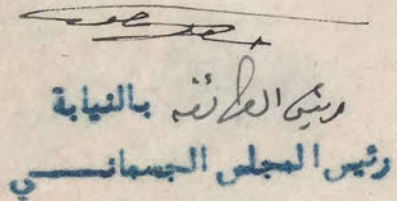 رئيس الطائفه بالنيابة
رئيس المجلس الجسمانــــي